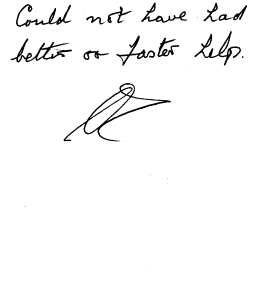 Could not have had
better or faster help.